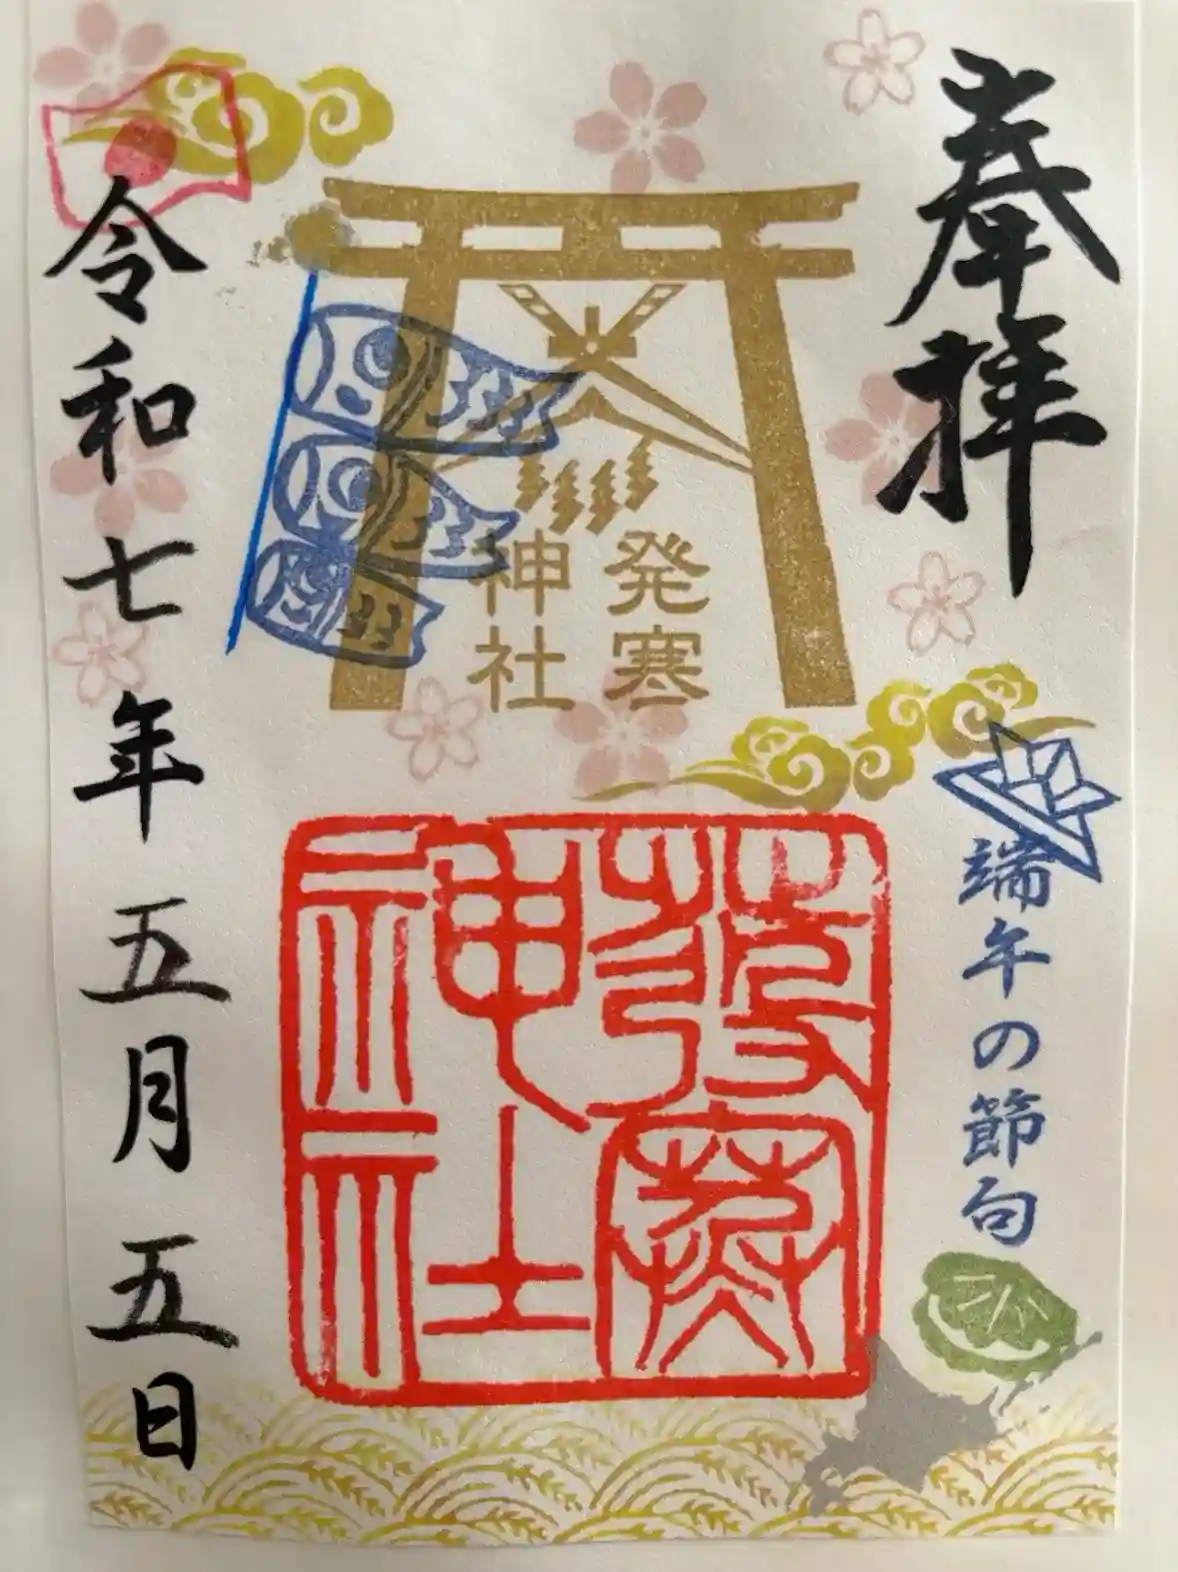 奉拝
発寒
神社
端午の節句
発寒
神社
令和七年五月五日